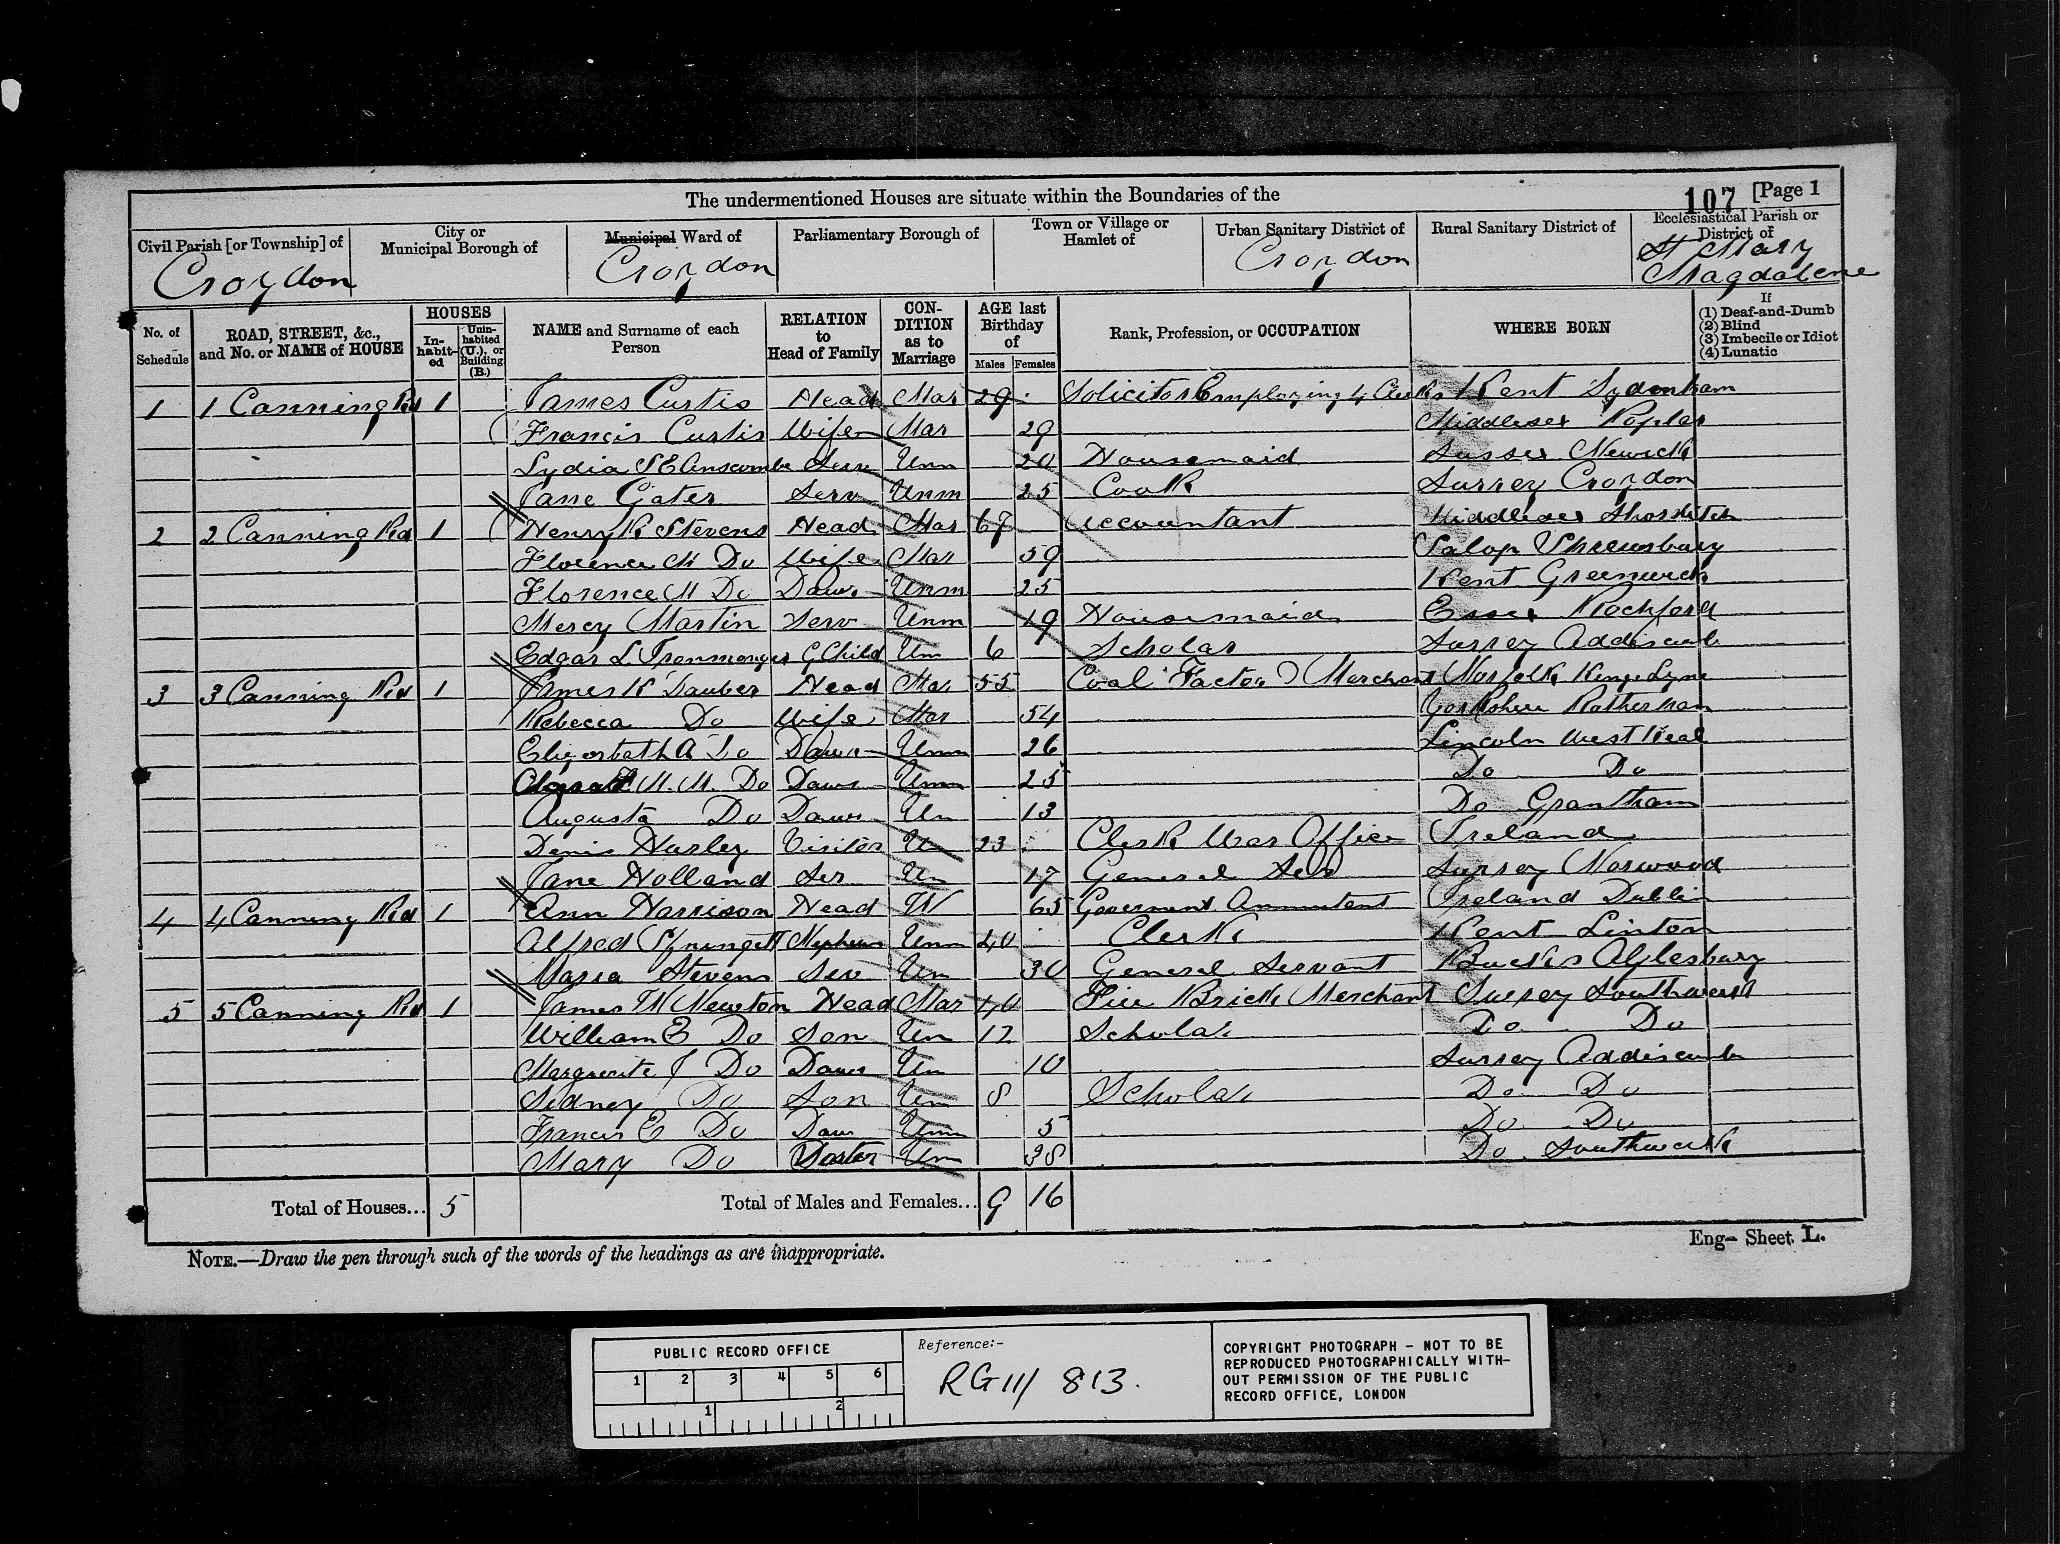 The undermentioned Houses are situate within the Boundaries of the
107 [Page 1
Civil Parish [or Township] of
City or Municipal Borough of
Municipal Ward of
Parliamentary Borough of
Town or Village or Hamlet of
Urban Sanitary District of
Rural Sanitary District of
Ecclesiastical Parish or District of
Croydon Croydon Croydon St Mary Magdalene
No. of Schedule
ROAD, STREET, &c., and No. or NAME of HOUSE
HOUSES
In-habit-ed
Unin-habited (U.), or Building (B.)
NAME and Surname of each Person
RELATION to Head of Family
CON-DITION as to Marriage
AGE last Birthday of
Males Females
Rank, Profession, or OCCUPATION
WHERE BORN
If
(1) Deaf-and-Dumb
(2) Blind
(3) Imbecile or Idiot
(4) Lunatic
1 1 Canning Rd 1 James Curtis Head Mar 29 Solicitor Employing 4 Clerks Kent Sydenham
Francis Curtis Wife Mar 29 Middlesex Poplar
Lydia S E Anscombe Serv Unm 20 Housemaid Sussex Newick
Jane Gater Serv Unm 25 Cook Surrey Croydon
2 2 Canning Rd 1 Henry K Stevens Head Mar 67 Accountant Middlesex Shorditch
Florence M Do Wife Mar 59 Salop Shrewsbury
Florence M Do Daur 25 Unm Kent Greenwich
Mercy Martin Serv Unm 19 Housemaid Essex Rochford
Edgar L Ironmonger G Child Un 6 Scholar Surrey Addiscomb
3 3 Canning Rd 1 James K Dauber Head Mar 55 Coal Factor & Merchant Norfolk Kings Lynn
Rebecca Do Wife Mar 54 Yorkshire Rotherham
Elizabeth A Do Daur Unm 26 Lincoln West Keal
M. M. Do Daur Unm 25 Do Do
Augusta Do Daur Un 13 Do Grantham
Denis Hurley Visitor Un 23 Clerk War Office Ireland
Jane Holland Ser Un 17 General Ser Surrey Norwood
4 4 Canning Rd 1 Ann Harrison Head W 65 Goverment Annuitant Ireland Dublin
Alfred Nephew Unm 40 Clerk Kent Linton
Maria Stevens Ser Un 30 General Servant Bucks Aylesbury
5 5 Canning Rd 1 James W Newton Head Mar 40 Fire Brick Merchant Surrey Southwark
William E Do Son Un 12 Scholar Do Do
Marguerite J Do Daur Un 10 Surrey Addiscomb
Sidney Do Son Un 8 Scholar Do Do
Francis E Do Daur Unm 5 Do Do
Mary Do Unm 38 Do Southwark
Total of Houses... 5 Total of Males and Females... 9 16
NOTE.—Draw the pen through such of the words of the headings as are inappropriate.
Eng- Sheet L.
PUBLIC RECORD OFFICE
1 2 3 4 5 6
1 2
Reference:-
RG 11/ 813.
COPYRIGHT PHOTOGRAPH - NOT TO BE
REPRODUCED PHOTOGRAPHICALLY WITH-
OUT PERMISSION OF THE PUBLIC
RECORD OFFICE, LONDON